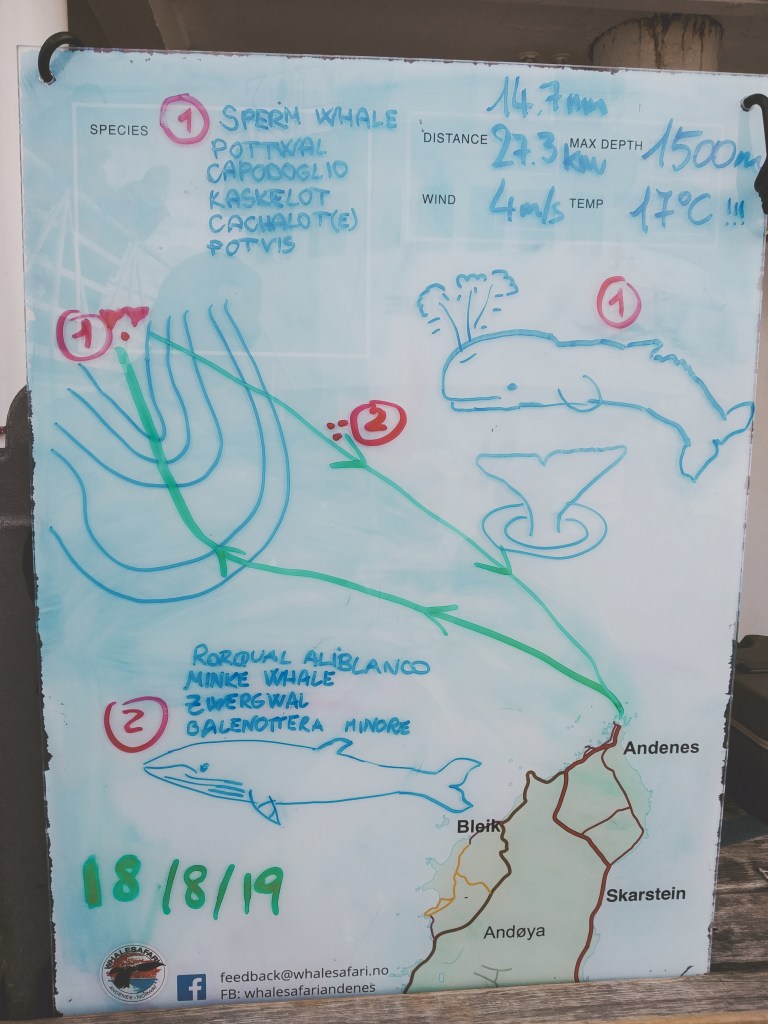 SPECIES
1
SPERM WHALE
POTTWAL
CAPODOGLIO
KASKELOT
CACHALOT(E)
POTVIS
14.7nm
DISTANCE 27.3 Km MAX DEPTH 1500m
WIND 4m/s TEMP 17°C !!!
1
1
2
RORQUAL ALIBLANCO
MINKE WHALE
ZWERGWAL
BALENOTTERA MINORE
2
Andenes
Bleik
Skarstein
Andøya
18/8/19
WHALESAFARI
ANDENES - NORWAY
feedback@whalesafari.no
FB: whalesafariandenes